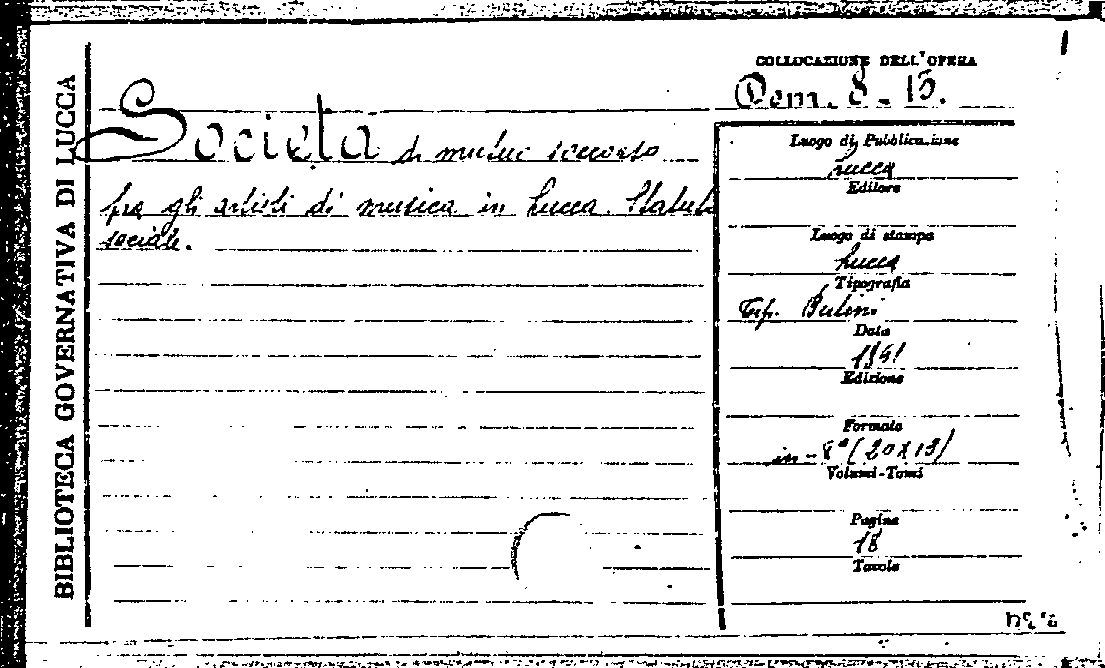 BIBLIOTECA GOVERNATIVA DI LUCCA
COLLOCAZIONE DELL'OPERA
Dom. 8-15.
Società di mutuo soccorso
fra gli artisti di musica in Lucca. Statuto
sociale.
Luogo di Pubblicazione
Lucca
Editore
Luogo di stampa
Lucca
Tipografia
Tip.
Data
Edizione
Formato
in-8° (20x13)
Volumi-Tomi
Pagine
18
Tavole